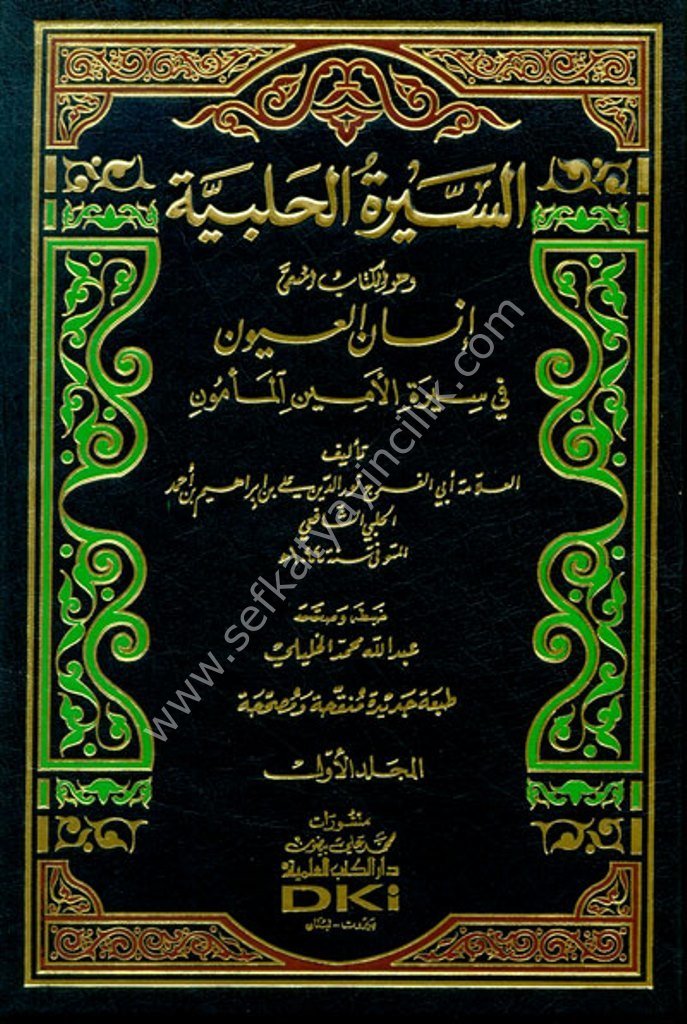 السِّيرَةُ الحَلَبيَّة
وهو الكتاب المسمى
إنسان العيون
في سيرة الأمين المأمون
تأليف
العلامة أبي الفرج نور الدين علي بن إبراهيم بن أحمد
الحلبي الشافعي
المتوفى سنة
ضبطه وصححه
عبد الله محمد الخليلي
طبعة جديدة منقحة ومصححة
المجلد الأول
منشورات
محمد علي بيضون
دار الكتب العلمية
DKi
بيروت - لبنان
www.sefkatyayincilik.com